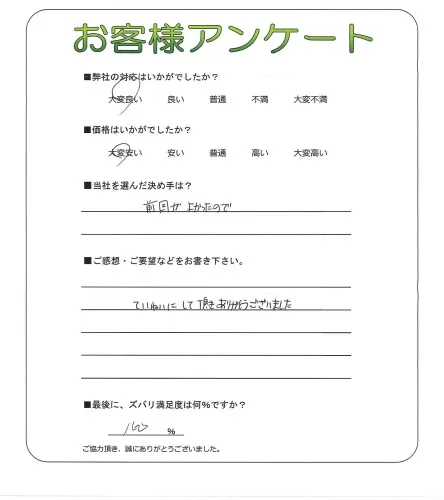 お客様アンケート
■弊社の対応はいかがでしたか?
大変良い 良い 普通 不満 大変不満
■価格はいかがでしたか?
大変安い 安い 普通 高い 大変高い
■当社を選んだ決め手は?
前回がよかったので
■ご感想・ご要望などをお書き下さい。
ていねいにして頂きありがとうございました
■最後に、ズバリ満足度は何%ですか?
100 %
ご協力頂き、誠にありがとうございました。